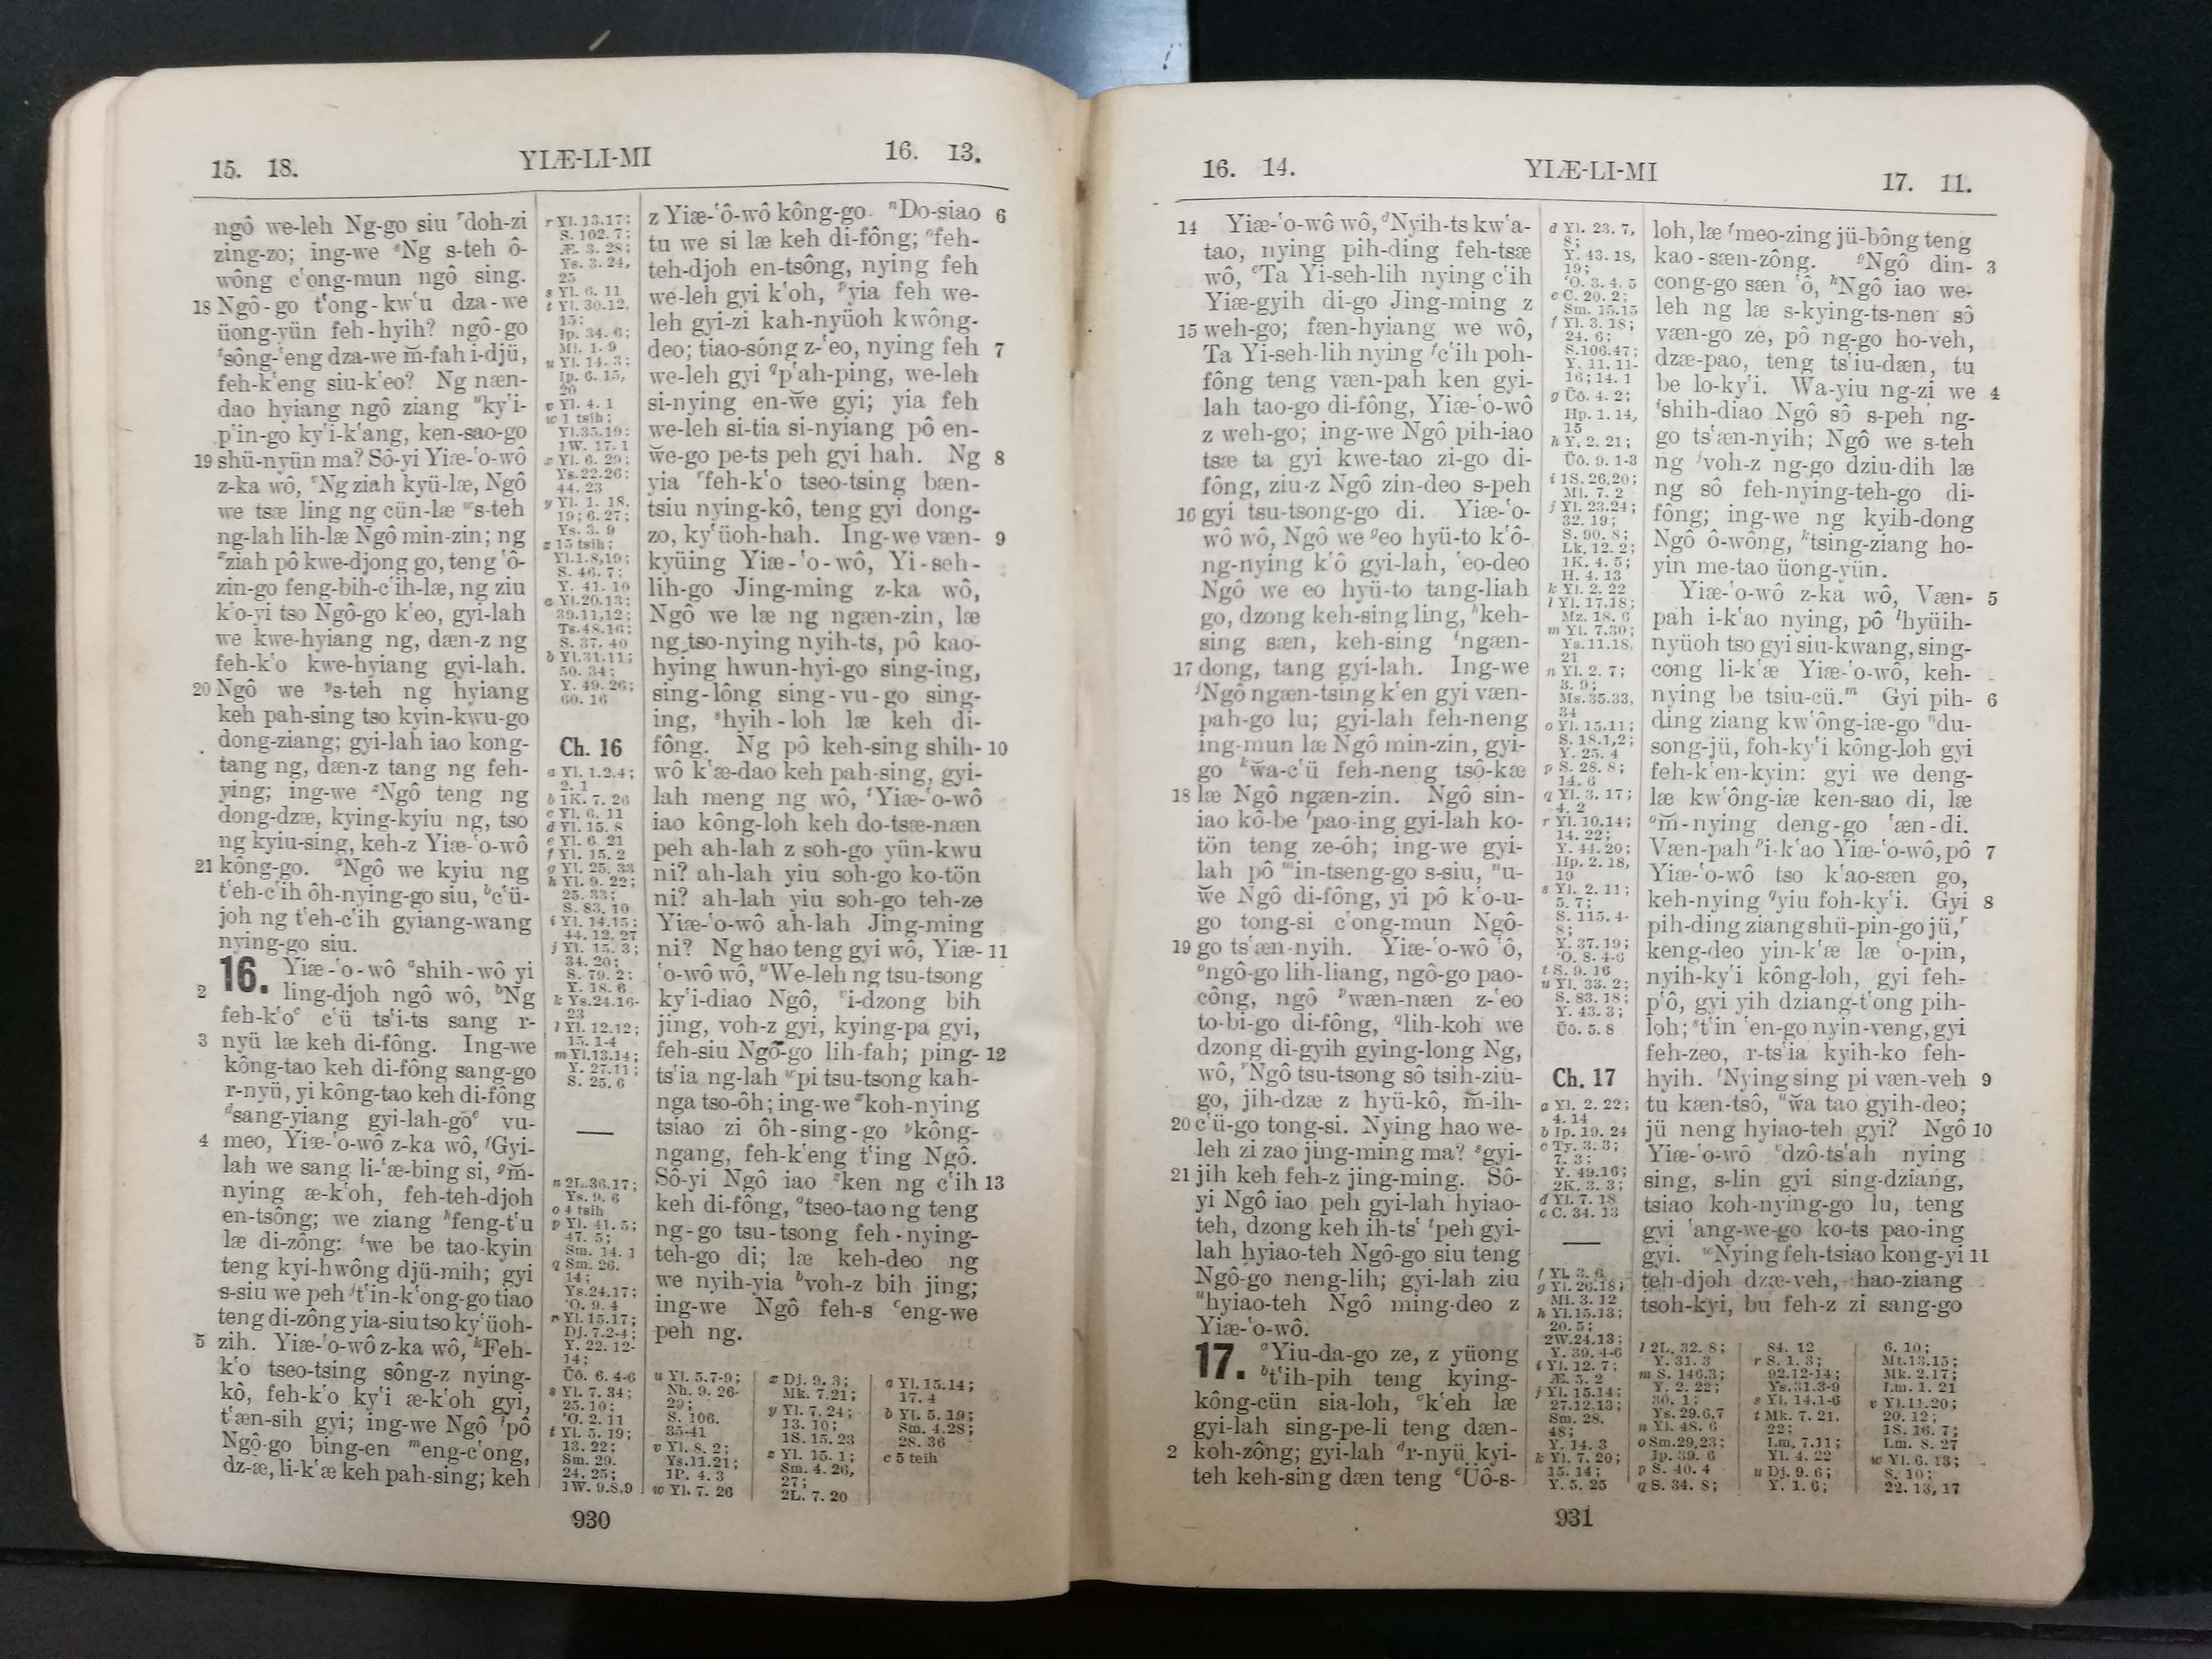 15. 18.
YIÆ-LI-MI
16. 13.
ngô we-leh Ng-go siu ʳdoh-zi
zing-zo; ing-we ˢNg s-teh ô-
wông c‘ong-mun ngô sing.
18 Ngô-go t‘ong-kw‘u dza-we
üong-yün feh-hyih? ngô-go
ᵗsông-‘eng dza-we m̆-fah i-djü,
feh-k‘eng siu-k‘eo? Ng næn-
dao hyiang ngô ziang ᵘky‘i-
p‘in-go ky‘i-k‘ang, ken-sao-go
19 shü-nyün ma? Sô-yi Yiæ-‘o-wô
z-ka wô, ᵛNg ziah kyü-læ, Ngô
we tsæ ling ng cün-læ ʷs-teh
ng-lah lih-læ Ngô min-zin; ng
ˣziah pô kwe-djong go, teng ‘ô-
zin-go feng-bih-c‘ih-læ, ng ziu
k‘o-yi tso Ngô-go k‘eo, gyi-lah
we kwe-hyiang ng, dæn-z ng
feh-k‘o kwe-hyiang gyi-lah.
20 Ngô we ʸs-teh ng hyiang
keh pah-sing tso kyin-kwu-go
dong-ziang; gyi-lah iao kong-
tang ng, dæn-z tang ng feh-
ying; ing-we ᶻNgô teng ng
dong-dzæ, kying-kyiu ng, tso
ng kyiu-sing, keh-z Yiæ-‘o-wô
21 kông-go. ᵃNgô we kyiu ng
t‘eh-c‘ih ôh-nying-go siu, ᵇc‘ü-
joh ng t‘eh-c‘ih gyiang-wang
nying-go siu.
16. Yiæ-‘o-wô ᵃshih-wô yi
2 ling-djoh ngô wô, ᵇNg
feh-k‘oᶜ c‘ü ts‘i-ts sang r-
3 nyü læ keh di-fông. Ing-we
kông-tao keh di-fông sang-go
r-nyü, yi kông-tao keh di-fông
ᵈsang-yiang gyi-lah-gôᵉ vu-
4 meo, Yiæ-‘o-wô z-ka wô, ᶠGyi-
lah we sang li-‘æ-bing si, ᵍm̆-
nying æ-k‘oh, feh-teh-djoh
en-tsông; we ziang ʰfeng-t‘u
læ di-zông: ⁱwe be tao-kyin
teng kyi-hwông djü-mih; gyi
s-siu we peh ʲt‘in-k‘ong-go tiao
teng di-zông yia-siu tso ky‘üoh-
5 zih. Yiæ-‘o-wô z-ka wô, ᵏFeh-
k‘o tseo-tsing sông-z nying-
kô, feh-k‘o ky‘i æ-k‘oh gyi,
t‘æn-sih gyi; ing-we Ngô ˡpô
Ngô-go bing-en ᵐeng-c‘ong,
dz-æ, li-k‘æ keh pah-sing; keh
r Yl. 13.17;
S. 102. 7;
Æ. 3. 28;
Ys. 3. 24,
25
s Yl. 6. 11
t Yl. 30.12,
15;
Ip. 34. 6;
Mi. 1. 9
u Yl. 14.3;
Ip. 6. 15,
20
v Yl. 4. 1
w 1 tsih;
Yl.35.19;
1W. 17.1
x Yl. 6. 29;
Ys.22.26;
44. 23
y Yl. 1. 18,
19; 6.27;
Ys. 3. 9
z 15 tsih;
Yl.1.8,19;
S. 46. 7;
Y. 41. 10
a Yl.20.13;
39.11,12;
Ts.48.16;
S. 37. 40
b Yl.31.11;
50. 34;
Y. 49.26;
60. 16
Ch. 16
a Yl. 1.2.4;
2. 1
b 1K. 7. 26
c Yl. 6. 11
d Yl. 15. 8
e Yl. 6. 21
f Yl. 15. 2
g Yl. 25. 33
h Yl. 9. 22;
25. 33;
S. 83. 10
i Yl. 14.15;
44. 12, 27
j Yl. 15. 3;
34. 20;
S. 79. 2;
Y. 18. 6
k Ys.24.16-
23
l Yl. 12.12;
15. 1-4
m Yl.13.14;
Y. 27.11;
S. 25. 6
n 2L.36.17;
Ys. 9. 6
o 4 tsih
p Yl. 41. 5;
47. 5;
Sm. 14. 1
q Sm. 26.
14;
Ys.24.17;
‘O. 9. 4
r Yl. 15.17;
Dj. 7.2-4;
Y. 22. 12-
14;
Üô. 6. 4-6
s Yl. 7. 34;
25. 10;
‘O. 2. 11
t Yl. 5. 19;
13. 22;
Sm. 29.
24, 25;
1W. 9.8.9
z Yiæ-‘ô-wô kông-go. ⁿDo-siao 6
tu we si læ keh di-fông; ᵒfeh-
teh-djoh en-tsông, nying feh
we-leh gyi k‘oh, ᵖyia feh we-
leh gyi-zi kah-nyüoh kwông-
deo; tiao-sóng z-‘eo, nying feh 7
we-leh gyi ᵠp‘ah-ping, we-leh
si-nying en-w̆e gyi; yia feh
we-leh si-tia si-nyiang pô en-
w̆e-go pe-ts peh gyi hah. Ng 8
yia ʳfeh-k‘o tseo-tsing bæn-
tsiu nying-kô, teng gyi dong-
zo, ky‘üoh-hah. Ing-we væn- 9
kyüing Yiæ-‘o-wô, Yi-seh-
lih-go Jing-ming z-ka wô,
Ngô we læ ng ngæn-zin, læ
ng tso-nying nyih-ts, pô kao-
hying hwun-hyi-go sing-ing,
sing-lông sing-vu-go sing-
ing, ˢhyih-loh læ keh di-
fông. Ng pô keh-sing shih- 10
wô k‘æ-dao keh pah-sing, gyi-
lah meng ng wô, ᵗYiæ-‘o-wô
iao kông-loh keh do-tsæ-næn
peh ah-lah z soh-go yün-kwu
ni? ah-lah yiu soh-go ko-tön
ni? ah-lah yiu soh-go teh-ze
Yiæ-‘o-wô ah-lah Jing-ming
ni? Ng hao teng gyi wô, Yiæ- 11
‘o-wô wô, ᵘWe-leh ng tsu-tsong
ky‘i-diao Ngô, ᵛi-dzong bih
jing, voh-z gyi, kying-pa gyi,
feh-siu Ngô-go lih-fah; ping- 12
ts‘ia ng-lah ʷpi tsu-tsong kah-
nga tso-ôh; ing-we ˣkoh-nying
tsiao zi ôh-sing-go ʸkông-
ngang, feh-k‘eng t‘ing Ngô.
Sô-yi Ngô iao ᶻken ng c‘ih 13
keh di-fông, ᵃtseo-tao ng teng
ng-go tsu-tsong feh-nying-
teh-go di; læ keh-deo ng
we nyih-yia ᵇvoh-z bih jing;
ing-we Ngô feh-s ᶜeng-we
peh ng.
u Yl. 5.7-9;
Nh. 9. 26-
29;
S. 106.
35-41
v Yl. 8. 2;
Ys.11.21;
1P. 4. 3
w Yl. 7. 26
x Dj. 9. 3;
Mk. 7.21;
y Yl. 7. 24;
13. 10;
1S. 15. 23
z Yl. 15. 1;
Sm. 4. 26,
27;
2L. 7. 20
a Yl. 15.14;
17. 4
b Yl. 5. 19;
Sm. 4.28;
28. 36
c 5 teih
930
16. 14.
YIÆ-LI-MI
17. 11.
14 Yiæ-‘o-wô wô, ᵈNyih-ts kw‘a-
tao, nying pih-ding feh-tsæ
wô, ᵉTa Yi-seh-lih nying c‘ih
Yiæ-gyih di-go Jing-ming z
15 weh-go; fæn-hyiang we wô,
Ta Yi-seh-lih nying ᶠc‘ih poh-
fông teng væn-pah ken gyi-
lah tao-go di-fông, Yiæ-‘o-wô
z weh-go; ing-we Ngô pih-iao
tsæ ta gyi kwe-tao zi-go di-
fông, ziu-z Ngô zin-deo s-peh
16 gyi tsu-tsong-go di. Yiæ-‘o-
wô wô, Ngô we ᵍeo hyü-to k‘ô-
ng-nying k‘ô gyi-lah, ‘eo-deo
Ngô we eo hyü-to tang-liah
go, dzong keh-sing ling, ʰkeh-
sing sæn, keh-sing ⁱngæn-
17 dong, tang gyi-lah. Ing-we
ʲNgô ngæn-tsing k‘en gyi væn-
pah-go lu; gyi-lah feh-neng
ing-mun læ Ngô min-zin, gyi-
go ᵏw̆a-c‘ü feh-neng tsô-kæ
18 læ Ngô ngæn-zin. Ngô sin-
iao kô-be ˡpao-ing gyi-lah ko-
tön teng ze-ôh; ing-we gyi-
lah pô ᵐin-tseng-go s-siu, ⁿu-
w̆e Ngô di-fông, yi pô k‘o-u-
go tong-si c‘ong-mun Ngô-
19 go ts‘æn-nyih. Yiæ-‘o-wô ‘ô,
ᵒngô-go lih-liang, ngô-go pao-
công, ngô ᵖwæn-næn z-‘eo
to-bi-go di-fông, ᵠlih-koh we
dzong di-gyih gying-long Ng,
wô, ʳNgô tsu-tsong sô tsih-ziu-
go, jih-dzæ z hyü-kô, m̆-ih-
20 c‘ü-go tong-si. Nying hao we-
leh zi zao jing-ming ma? ˢgyi-
21 jih keh feh-z jing-ming. Sô-
yi Ngô iao peh gyi-lah hyiao-
teh, dzong keh ih-ts‘ ᵗpeh gyi-
lah hyiao-teh Ngô-go siu teng
Ngô-go neng-lih; gyi-lah ziu
ᵘhyiao-teh Ngô ming-deo z
Yiæ-‘o-wô.
17. ᵃYiu-da-go ze, z yüong
ᵇt‘ih-pih teng kying-
kông-cün sia-loh, ᶜk‘eh læ
gyi-lah sing-pe-li teng dæn-
2 koh-zông; gyi-lah ᵈr-nyü kyi-
teh keh-sing dæn teng ᵉÜô-s-
d Yl. 23. 7,
8;
Y. 43. 18,
19;
‘O. 3. 4. 5
e C. 20. 2;
Sm. 15.15
f Yl. 3. 18;
24. 6;
S.106.47;
Y. 11. 11-
16; 14. 1
g Üô. 4. 2;
Hp. 1. 14,
15
h Y. 2. 21;
Üô. 9. 1-3
i 1S. 26.20;
Mi. 7. 2
j Yl. 23.24;
32. 19;
S. 90. 8;
Lk. 12. 2;
1K. 4. 5;
H. 4. 13
k Yl. 2. 22
l Yl. 17.18;
Mz. 18. 6
m Yl. 7.30;
Ys.11.18,
21
n Yl. 2. 7;
3. 9;
Ms.35.33,
34
o Yl. 15.11;
S. 18.1,2;
Y. 25. 4
p S. 28. 8;
14. 6
q Yl. 3. 17;
4. 2
r Yl. 10.14;
14. 22;
Y. 44. 20;
Hp. 2. 18,
19
s Yl. 2. 11;
5. 7;
S. 115. 4-
8;
Y. 37. 19;
‘O. 8. 4-6
t S. 9. 16
u Yl. 33. 2;
S. 83. 18;
Y. 43. 3;
Üô. 5. 8
Ch. 17
a Yl. 2. 22;
4. 14
b Ip. 19. 24
c Ty. 3. 3;
7. 3;
Y. 49.16;
2K. 3. 3;
d Yl. 7. 18
e C. 34. 13
f Yl. 3. 6
g Yl. 26.18;
Mi. 3. 12
h Yl.15.13;
20. 5;
2W.24.13;
Y. 39. 4-6
i Yl. 12. 7;
Æ. 5. 2
j Yl. 15.14;
27.12,13;
Sm. 28.
48;
Y. 14. 3
k Yl. 7. 20;
15. 14;
Y. 5. 25
loh, læ ᶠmeo-zing jü-bông teng
kao-sæn-zông. ᵍNgô din- 3
cong-go sæn ‘ô, ʰNgô iao we-
leh ng læ s-kying-ts-nen sô
væn-go ze, pô ng-go ho-veh,
dzæ-pao, teng ts‘iu-dæn, tu
be lo-ky‘i. Wa-yiu ng-zi we 4
ⁱshih-diao Ngô sô s-peh ng-
go ts‘æn-nyih; Ngô we s-teh
ng ʲvoh-z ng-go dziu-dih læ
ng sô feh-nying-teh-go di-
fông; ing-we ng kyih-dong
Ngô ô-wông, ᵏtsing-ziang ho-
yin me-tao üong-yün.
Yiæ-‘o-wô z-ka wô, Væn- 5
pah i-k‘ao nying, pô ˡhyüih-
nyüoh tso gyi siu-kwang, sing-
cong li-k‘æ Yiæ-‘o-wô, keh-
nying be tsiu-cü.ᵐ Gyi pih- 6
ding ziang kw‘ông-iæ-go ⁿdu-
song-jü, foh-ky‘i kông-loh gyi
feh-k‘en-kyin: gyi we deng-
læ kw‘ông-iæ ken-sao di, læ
ᵒm̆-nying deng-go ‘æn-di.
Væn-pah ᵖi-k‘ao Yiæ-‘o-wô, pô 7
Yiæ-‘o-wô tso k‘ao-sæn go,
keh-nying ᵠyiu foh-ky‘i. Gyi 8
pih-ding ziang shü-pin-go jü,ʳ
keng-deo yin-k‘æ læ ‘o-pin,
nyih-ky‘i kông-loh, gyi feh-
p‘ô, gyi yih dziang-t‘ong pih-
loh; ˢt‘in ‘en-go nyin-veng, gyi
feh-zeo, r-ts‘ia kyih-ko feh-
hyih. ᵗNying sing pi væn-veh 9
tu kæn-tsô, ᵘw̆a tao gyih-deo;
jü neng hyiao-teh gyi? Ngô 10
Yiæ-‘o-wô ᵛdzô-ts‘ah nying
sing, s-lin gyi sing-dziang,
tsiao koh-nying-go lu, teng
gyi ‘ang-we-go ko-ts pao-ing
gyi. ʷNying feh-tsiao kong-yi 11
teh-djoh dzæ-veh, hao-ziang
tsoh-kyi, bu feh-z zi sang-go
l 2L. 32. 8;
Y. 31. 3
m S. 146.3;
Y. 2. 22;
30. 1;
Ys. 29.6,7
n Yl. 48. 6
o Sm.29,23;
Ip. 39. 6
p S. 40. 4
q S. 34. 8;
84. 12
r S. 1. 3;
92.12-14;
Ys.31.3-9
s Yl. 14.1-6
t Mk. 7. 21,
22;
Lm. 7.11;
Yl. 4. 22
u Dj. 9. 6;
Y. 1. 6;
6. 10;
Mt.13.15;
Mk. 2.17;
Lm. 1. 21
v Yl.11.20;
20. 12;
1S. 16. 7;
Lm. 8. 27
w Yl. 6. 13;
8. 10;
22. 13, 17
931